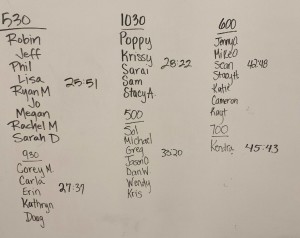 530
Robin
Jeff
Phil
Lisa 25:51
Ryan M
Jo
Megan
Rachel M
Sarah D
930
Corey M.
Carla
Erin 27:37
Kathryn
Doug
1030
Poppy
Krissy
Sarai 28:22
Sam
Stacy A.
500
Sol
Michael
Greg
Jason D 35:20
Dan W
Wendy
Kris
600
Jenny D
Mike O
Sean 43:48
Stacy H
Katie
Cameron
700
Kendra 45:43